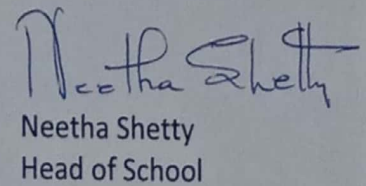 Neetha Shetty
Neetha Shetty
Head of School